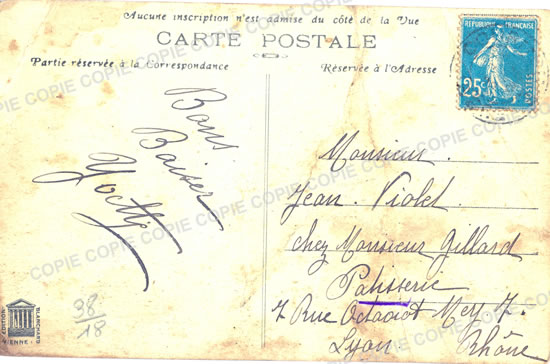 Aucune inscription n'est admise du côté de la Vue
CARTE POSTALE
Partie réservée à la Correspondance
Réservée à l'Adresse
REPUBLIQUE FRANÇAISE
25c
POSTES
Bons
Baiser
Monsieur
Jean Violet
chez Monsieur Gillard
Patisserie
7 Rue Mey 7
Lyon Rhône
38/18
EDITION BLANCHARD
VIENNE
COPIE COPIE COPIE COPIE COPIE